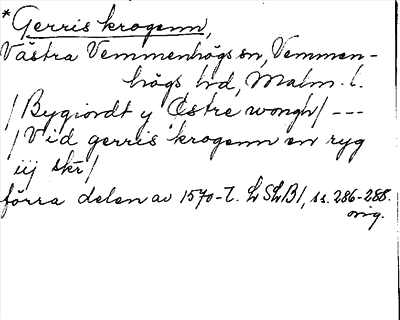 *Gerris krogenn,
Västra Vemmenhögs sn, Vemmen-
högs hd, Malm. l.
/Bygiordt y Østre wongh/ ---
/Vid gerris krogenn en ryg
iij skr/
förra delen av 1570-t. LSLB1, ss. 286-288.
orig.